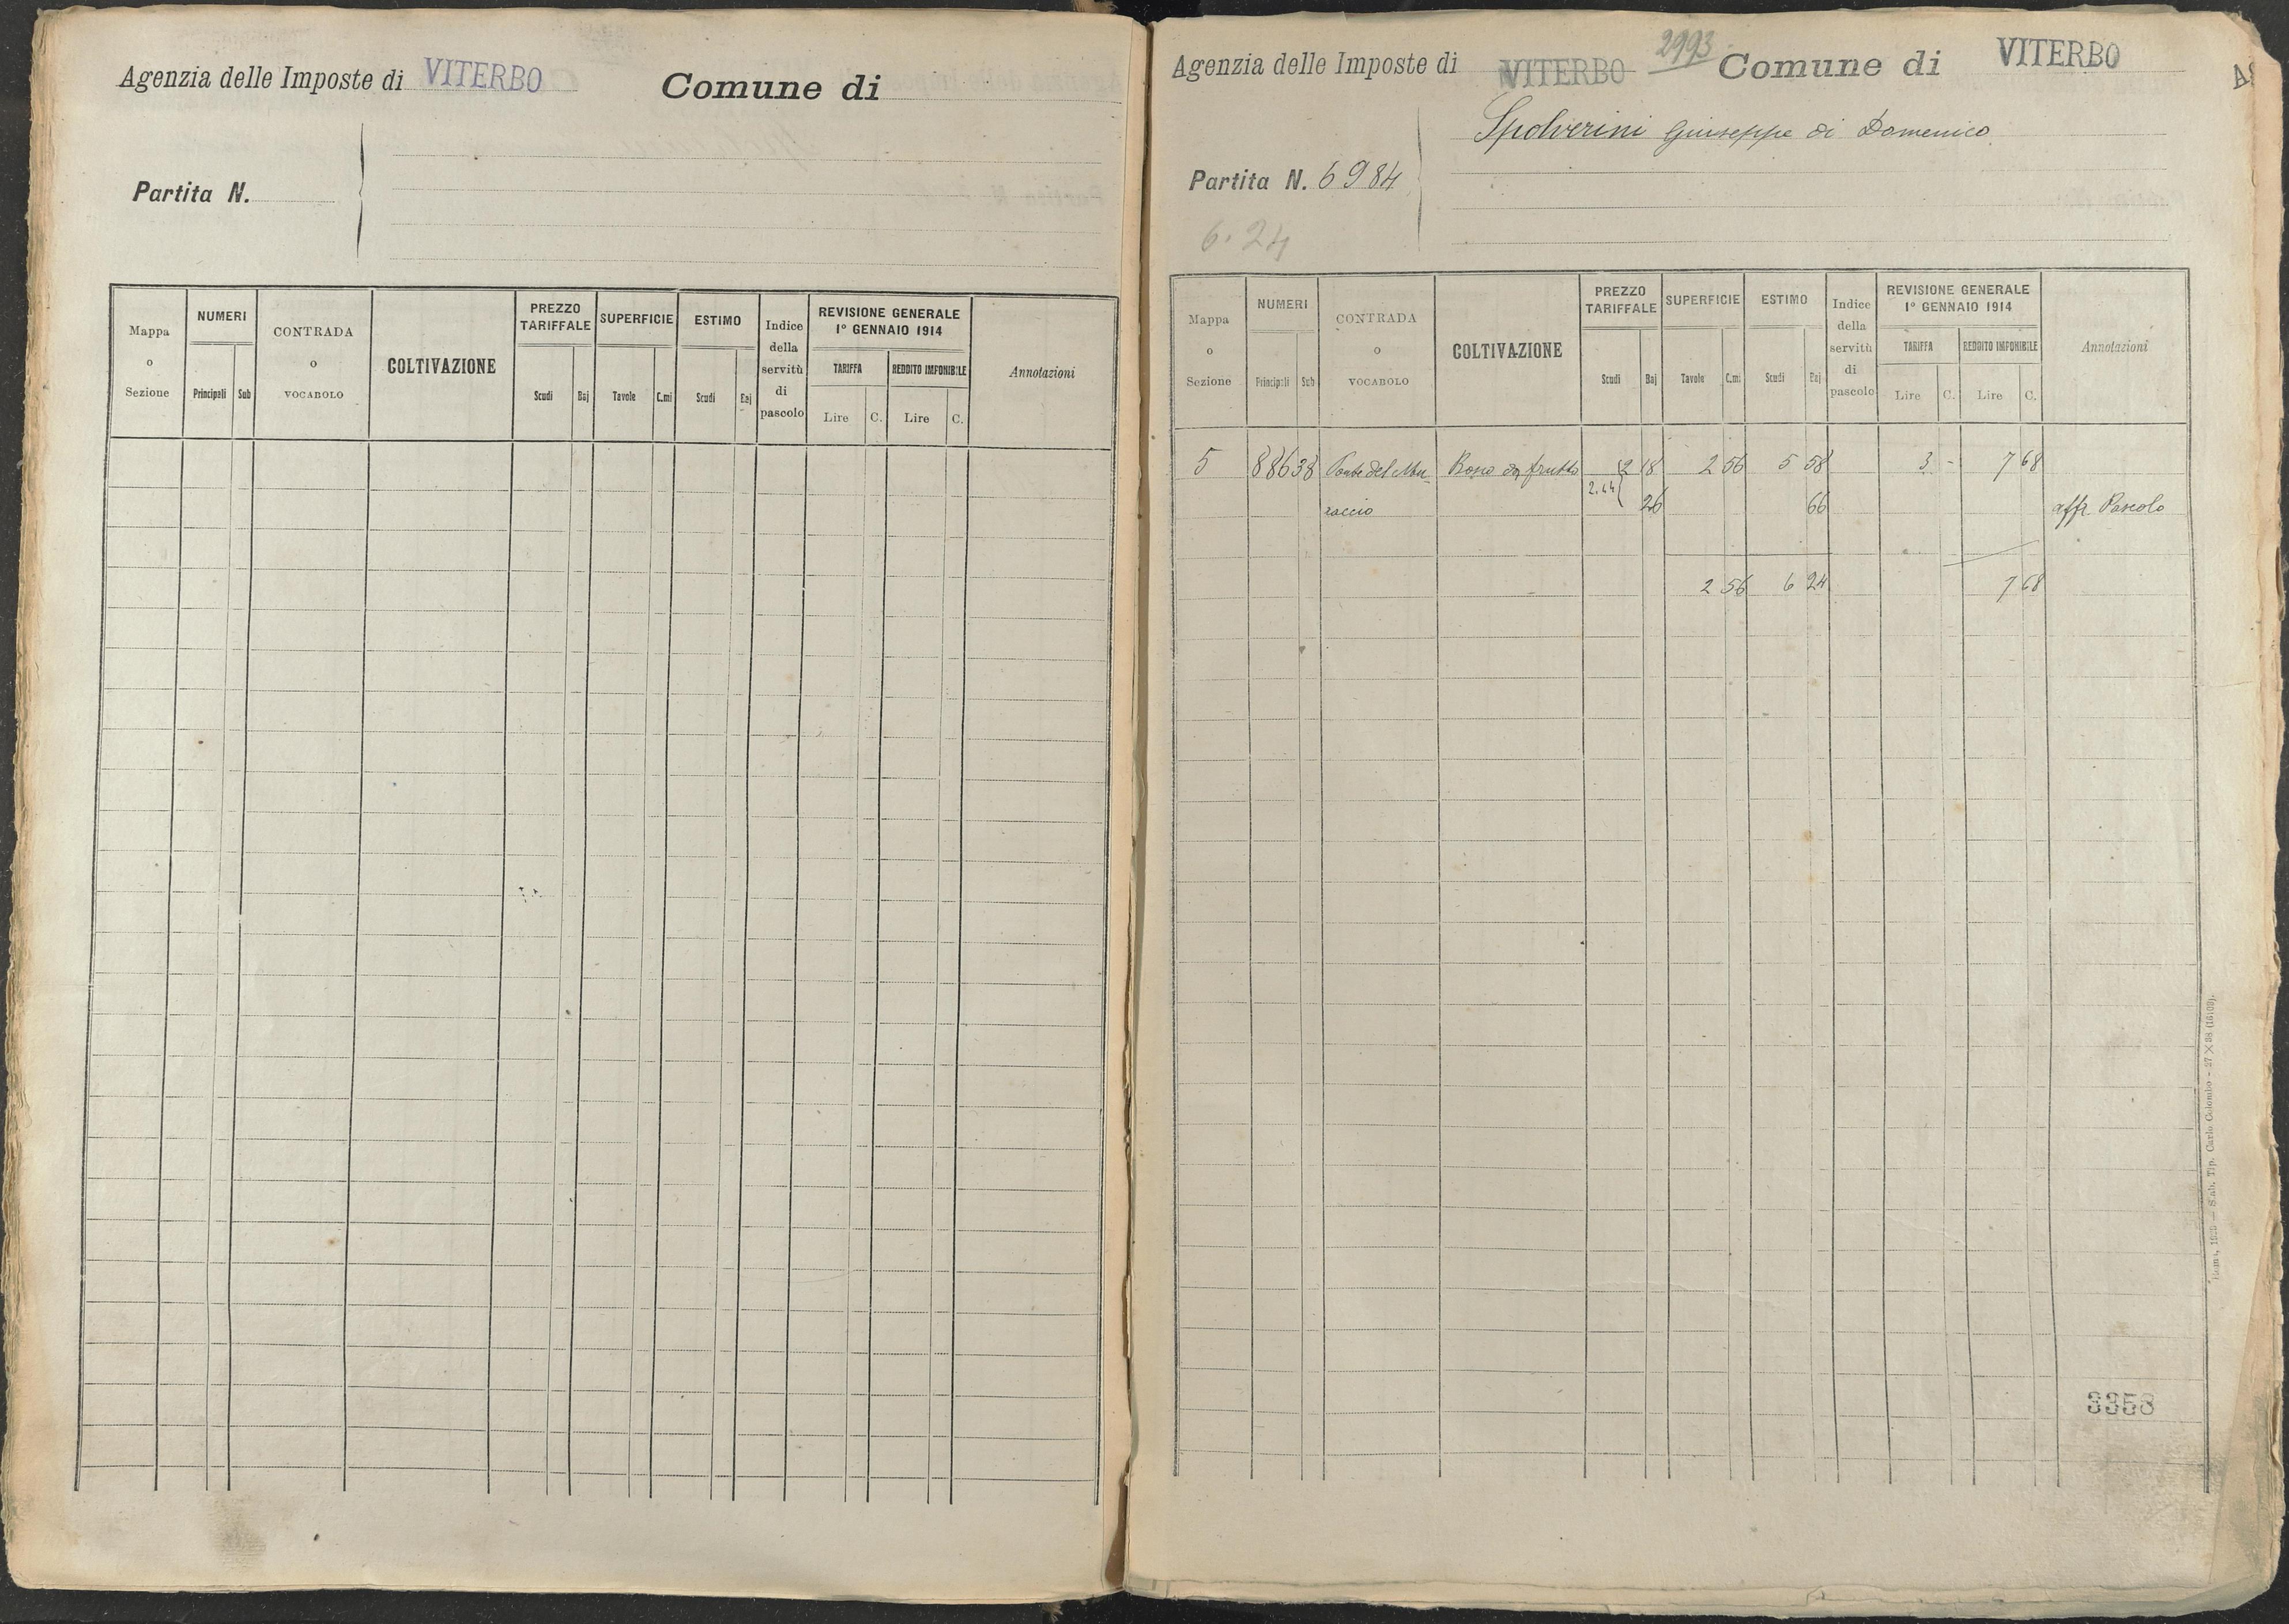 Agenzia delle Imposte di VITERBO Comune di
Partita N.
Mappa o Sezione
NUMERI
Principali Sub
CONTRADA o VOCABOLO
COLTIVAZIONE
PREZZO TARIFFALE
Scudi Baj
SUPERFICIE
Tavole C.mi
ESTIMO
Scudi Baj
Indice della servitù di pascolo
REVISIONE GENERALE
1° GENNAIO 1914
TARIFFA REDDITO IMPONIBILE
Lire C. Lire C.
Annotazioni
2993
Agenzia delle Imposte di VITERBO Comune di VITERBO
Spolverini Giuseppe di Domenico
Partita N. 6984
6.24
Mappa o Sezione
NUMERI
Principali Sub
CONTRADA o VOCABOLO
COLTIVAZIONE
PREZZO TARIFFALE
Scudi Baj
SUPERFICIE
Tavole C.mi
ESTIMO
Scudi Baj
Indice della servitù di pascolo
REVISIONE GENERALE
1° GENNAIO 1914
TARIFFA REDDITO IMPONIBILE
Lire C. Lire C.
Annotazioni
5 88638 del da frutto 2 18 2 56 5 58 3 - 7 68
2.44 26 66 aff. Pascolo
2 56 6 24 7 68
3358
Stab. Tip. Carlo Colombo - 27 X 38